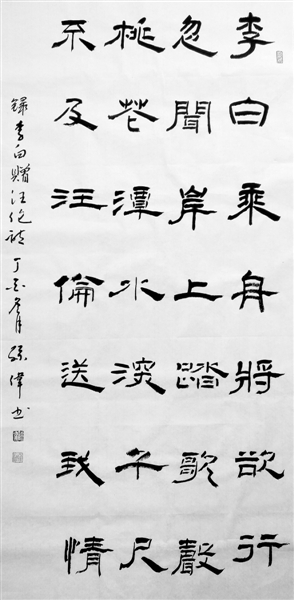 李白乘舟將欲行
忽聞岸上踏歌聲
桃花潭水深千尺
不及汪倫送我情
錄李白贈汪倫詩 丁亥 偉書